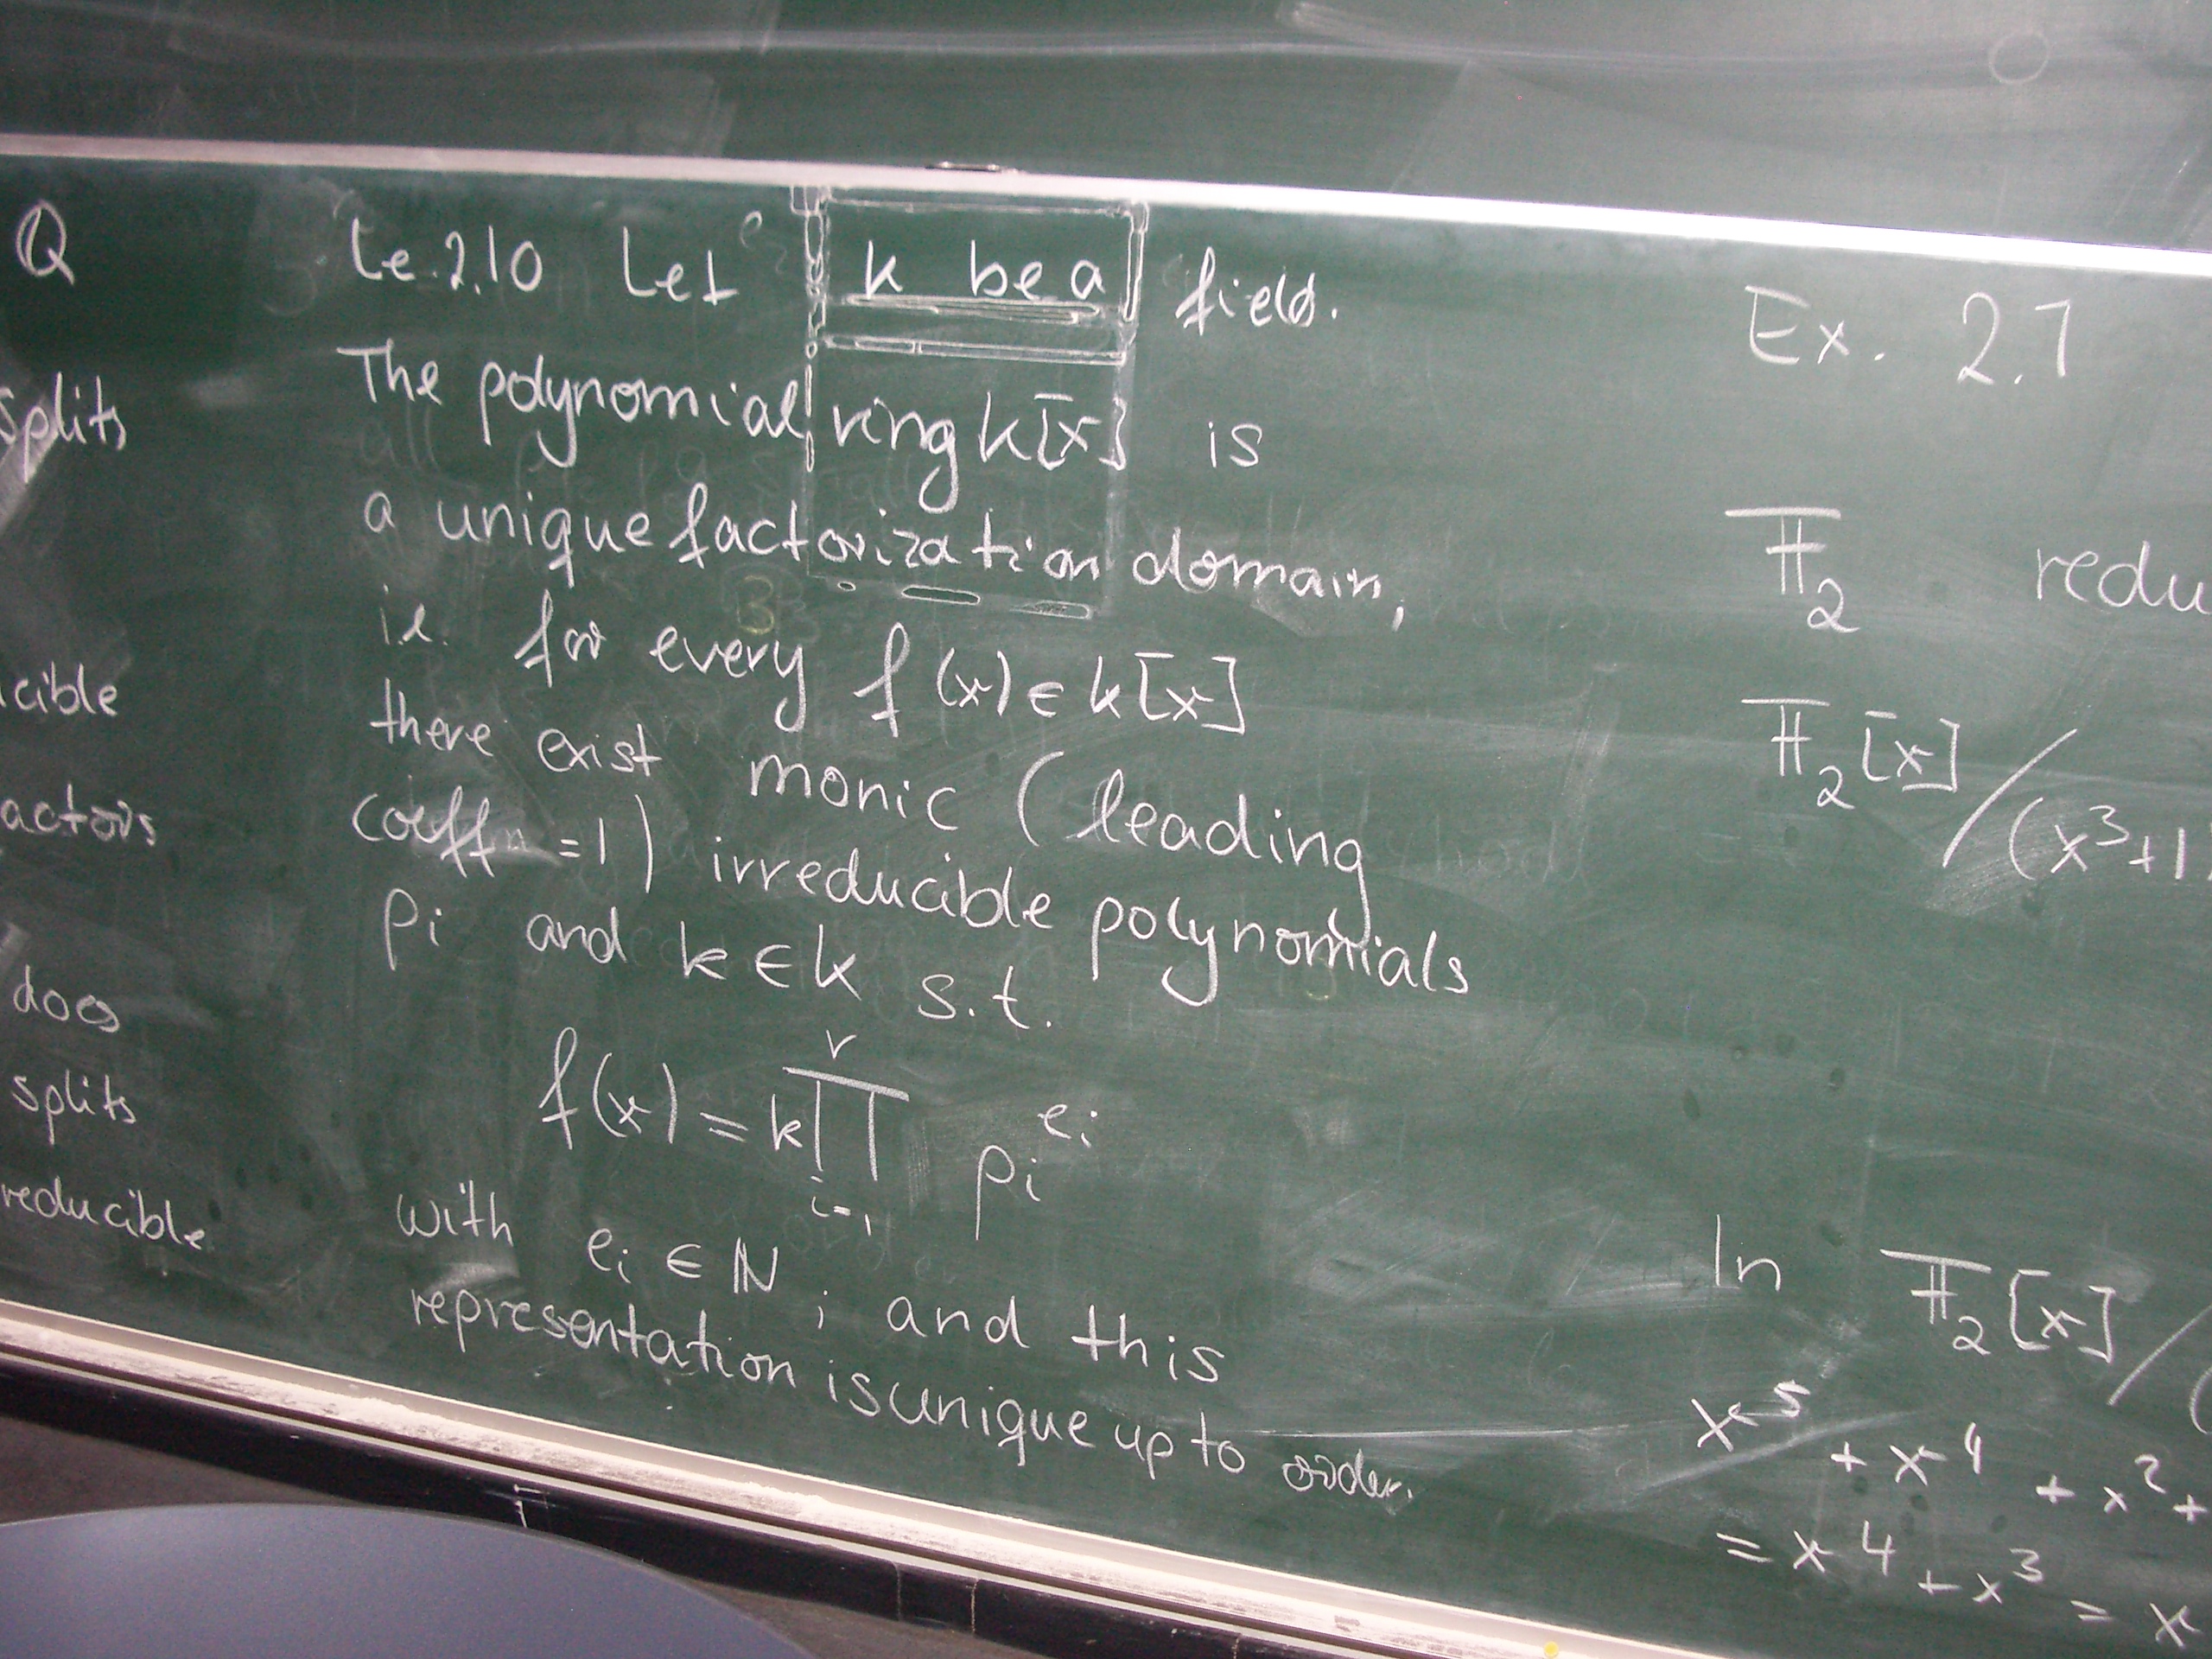 Q
splits
cible
actors
does
splits
reducible
Le.2.10 Let k be a field.
The polynomial ring k[x] is
a unique factorization domain,
i.e. for every f(x) ∈ k[x]
there exist monic (leading
coeff = 1) irreducible polynomials
pi and k ∈ k s.t.
r
f(x) = k ∏ pi^ei
i=1
with ei ∈ ℕ, and this
representation is unique up to order.
Ex. 2.7
𝔽₂ redu
𝔽₂[x]/(x³+1
In 𝔽₂[x]/(
x⁵ + x⁴ + x² +
= x⁴ + x³ = x